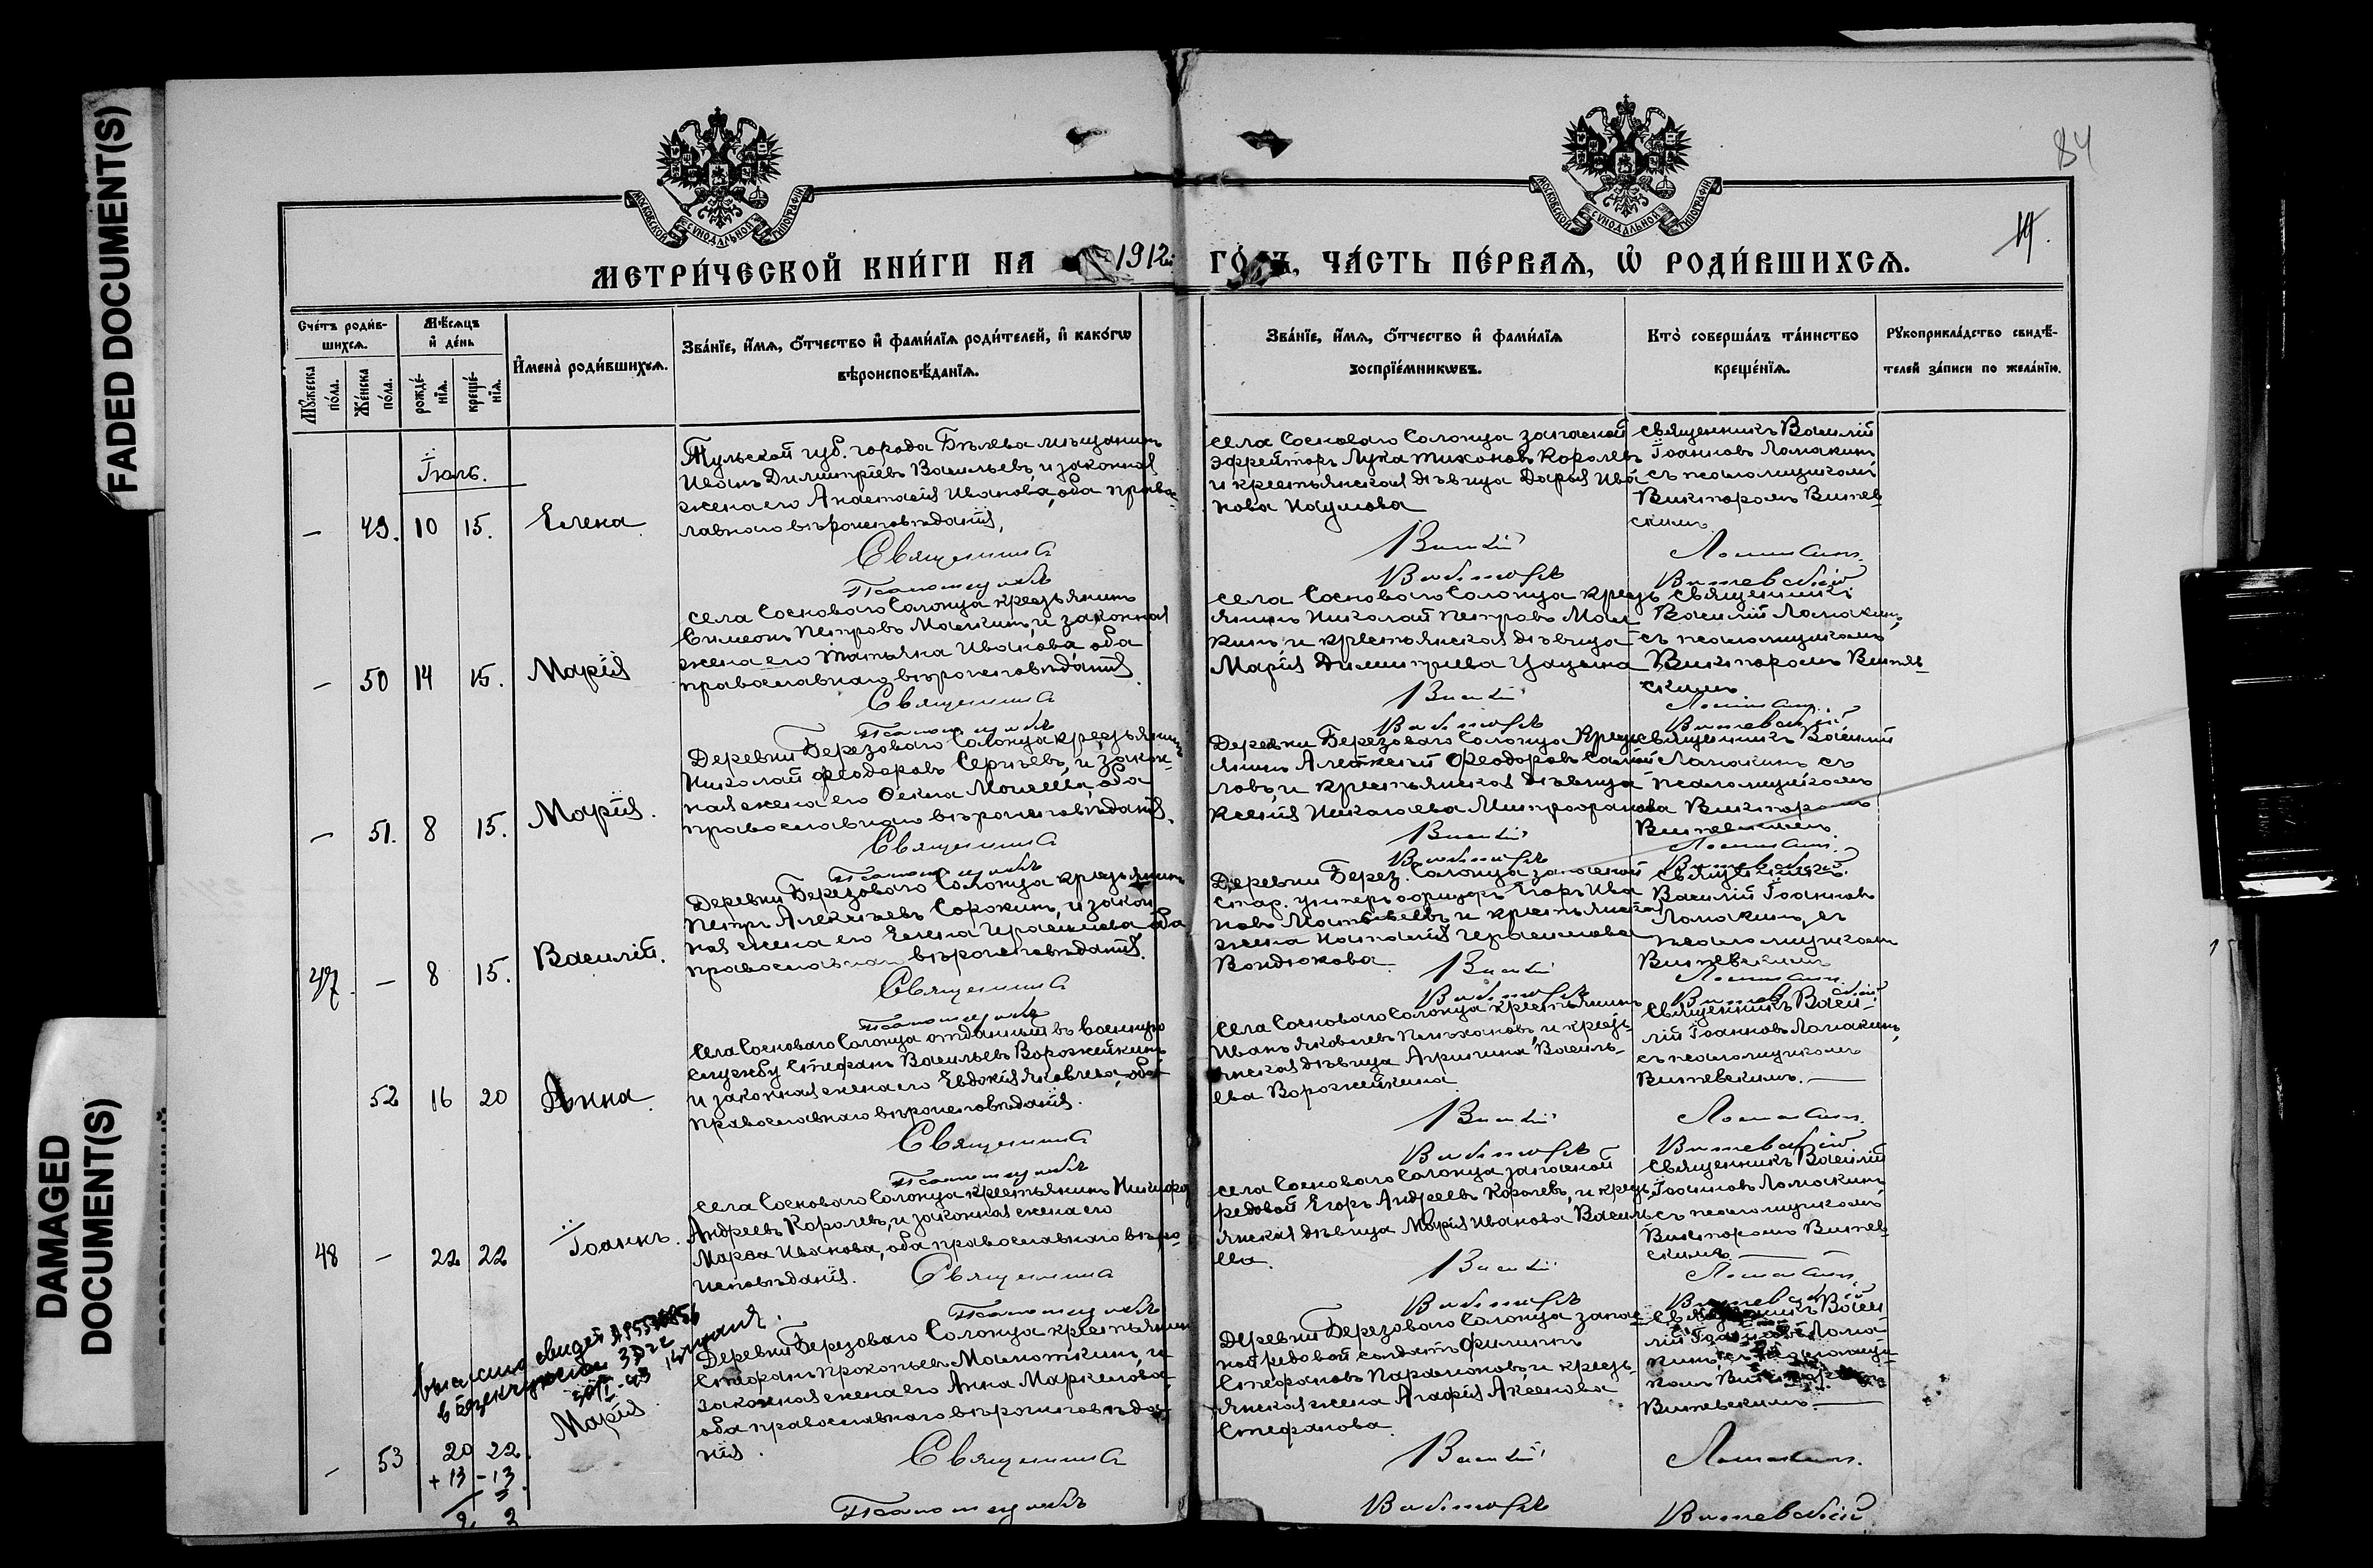 FADED DOCUMENT(S)
DAMAGED
DOCUMENT(S)
МОСКОВСКОЙ СѴНОДАЛЬНОЙ ТИПОГРАФІИ
МОСКОВСКОЙ СѴНОДАЛЬНОЙ ТИПОГРАФІИ
84
МЕТРИ́ЧЕСКОЙ КНИ́ГИ НА 1912
ГО́ДЪ, ЧА́СТЬ ПЕ́РВАЯ, Ѡ҆ РОДИ́ВШИХСЯ.
Сче́тъ роди́в-
шихся.
Мѣ́сяцъ
и҆ де́нь
Мꙋ́жеска
по́ла.
Же́нска
по́ла.
рожде́-
нїя.
креще́-
нїя.
И҆мена̀ роди́вшихся.
Зва́нїе, и҆́мя, ѻ҆́тчество и҆ фами́лїя роди́телей, и҆ како́гѡ
вѣроисповѣ́данїя.
Зва́нїе, и҆́мя, ѻ҆́тчество и҆ фами́лїя
воспрїе́мникѡвъ.
Кто̀ соверша́лъ та́инство
креще́нїя.
Рꙋкоприкла́дство свидѣ́-
телей за́писи по жела́нїю.
Іюль.
— 49. 10 15. Елена
Тульской губ. города Бѣлева мѣщанинъ
Иванъ Димитріевъ Васильевъ, и законная
жена его Анастасія Иванова, оба право-
славнаго вѣроисповѣданія,
Священникъ
Псаломщикъ
села Сосноваго Солонца запасной
эффрейторъ Лука Тихоновъ Королевъ
и крестьянская дѣвица Дарья Ива
нова Наумова
Василій
Викторъ
священникъ Василій
Іоанновъ Ломакинъ
съ псаломщикомъ
Викторомъ Витев-
скимъ
Ломакинъ.
Витевскій
— 50 14 15. Марія
села Сосноваго Солонца крестьянинъ
Симеонъ Петровъ Маскинъ, и законная
жена его Татьяна Иванова, оба
православнаго вѣроисповѣданія
Священникъ
Псаломщикъ
села Сосноваго Солонца крест
янинъ Николай Петровъ Мас
кинъ, и крестьянская дѣвица
Марія Димитріева
Василій
Викторъ
священникъ
Василій Ломакинъ,
съ псаломщикомъ
Викторомъ Витев-
скимъ
Ломакинъ.
Витевскій
— 51. 8 15. Марія.
Деревни Березоваго Солонца крестьянинъ
Николай Феодоровъ Сергѣевъ, и закон-
ная жена его Оекла Моисеева, оба
православнаго вѣроисповѣданія.
Священникъ
Псаломщикъ
Деревни Березоваго Солонца крест
янинъ Алексей Феодоровъ
ловъ, и крестьянская дѣвица
Ксенія Николаева Митрофанова
Василій
Викторъ
священникъ Василий
Ломакинъ съ
псаломщикомъ
Викторомъ
Витевскимъ
Ломакинъ.
Витевскій
47. — 8 15. Василій.
Деревни Березоваго Солонца крестьянинъ
Петръ Алексѣевъ Сорокинъ, и закон
ная жена его Елена Герасимова оба
православнаго вѣроисповѣданія.
Священникъ
Псаломщикъ
Деревни Берез. Солонца запасной
стар. унтеръ офицеръ Егоръ Ива
новъ Матвѣевъ и крестьянская
жена Наталія Герасимова
Вондюкова
Василій
Викторъ
Священникъ
Василій Іоанновъ
Ломакинъ, съ
псаломщикомъ
Витевскимъ
Ломакинъ.
Витевскій
52 16 20 Анна.
села Сосноваго Солонца отданный въ военную
службу Стефанъ Васильевъ Ворожейкинъ
и законная жена его Евдокія Яковлева, оба
православнаго вѣроисповѣданія.
Священникъ
Псаломщикъ
села Сосноваго Солонца крестьянинъ
Иванъ Яковлевъ и крест-
янская дѣвица Агрипина Василь-
ева Ворожейкина
Василій
Викторъ
Священникъ Васи-
лій Іоанновъ Ломакинъ,
съ псаломщикомъ
Витевскимъ. —
Ломакинъ.
Витевскій
48 — 22 22 Іоаннъ.
села Сосноваго Солонца крестьянинъ Никифоръ
Андреевъ Королевъ, и законная жена его
Марѳа Иванова, оба православнаго вѣро-
исповѣданія.
Священникъ
Псаломщикъ
села Сосноваго Солонца запасной
рядовой Егоръ Андреевъ Королевъ, и крест
янская дѣвица Марія Иванова Василь
ева.
Василій
Викторъ
священникъ Василій
Іоанновъ Ломакинъ
съ псаломщикомъ
Викторомъ Витев-
скимъ —
Ломакинъ.
Витевскій
— 53 20 22. Марія
+13 -13
Деревни Березоваго Солонца крестьянинъ
Стефанъ Прокопьевъ и
законная жена его Анна Маркелова,
оба православнаго вѣроисповѣда-
нія.
Священникъ
Псаломщикъ
Деревни Березоваго Солонца запас
ной рядовой солдатъ Филиппъ
Стефановъ Парамоновъ и крест-
янская жена Агафія Аксенова
Стефанова.
Василій
Викторъ
Священникъ Васи
лій Іоанновъ Лома-
кинъ, съ псаломщи-
комъ Викторомъ
Витевскимъ. —
Ломакинъ.
Витевскій